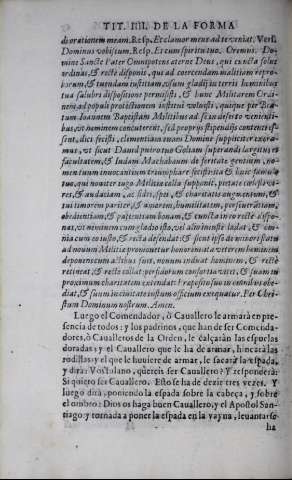 TIT. IIII. DE LA FORMA
di orationem meam. Resp. Et clamor meus ad te veniat. Vers.
Dominus vobiscum. Resp. Et cum spiritu tuo. Oremus. Do-
mine Sancte Pater Omnipotens æterne Deus, qui cuncta solus
ordinas, & recte disponis, qui ad coercendam malitiam repro-
borum, & tuendam iustitiam, usum gladij in terris hominibus
tua salubri dispositione permisisti, & hunc Militarem Ordi-
nem ad populi protectionem institui voluisti, quique per Bea-
tum Ioannem Baptistam Militibus ad se in deserto venienti-
bus, vt neminem concuterent, sed proprijs stipendijs contenti es-
sent, dici fecisti, clementiam tuam Domine suppliciter exora-
mus, vt sicut Dauid puero tuo Goliam superandi largitus es
facultatem, & Iudam Machabæum de feritate gentium, no-
men tuum inuocantium triumphare fecisti: ita & huic famulo
tuo, qui nouiter iugo Militiæ colla supponit, pietate cœlesti vi-
res, & audaciam, ac fidei, spei, & charitatis augmentum, &
tui timorem pariter, & amorem, humilitatem, perseuerantiam,
obedientiam, & patientiam bonam, & cuncta in eo recte dispo-
nas, vt neminem cum gladio isto, vel alio iniuste lædat, & om-
nia cum eo iusta, & recta defendat: & sicut ipse de minori statu
ad nouum Militiæ promouetur honorem ita veterem hominem
deponens cum actibus suis, nouum induat hominem, & recte
timeat, & recte collat: perfidorum consortia vitet, & suam in
proximum charitatem extendat: Præposito suo in omnibus obe-
diat, & suum in cunctis iuste officium exequatur. Per Chri-
stum Dominum nostrum. Amen.
Luego el Comendador, ò Cauallero le armarà en pre-
sencia de todos: y los padrinos, que han de ser Comenda-
dores, ò Caualleros de la Orden, le calçaràn las espuelas
doradas: y el Cauallero que le ha de armar, hincarà las
rodillas: y el que le huuiere de armar, le sacarà la espada,
y dirà: Vos fulano, quereis ser Cauallero? Y responderà:
Si quiero ser Cauallero. Esto se ha de dezir tres vezes. Y
luego dirà, poniendo la espada sobre la cabeça, y sobre
el ombro: Dios os haga buen Cauallero, y el Apostol San-
tiago: y tornada a poner la espada en la vayna, leuantarse
ha